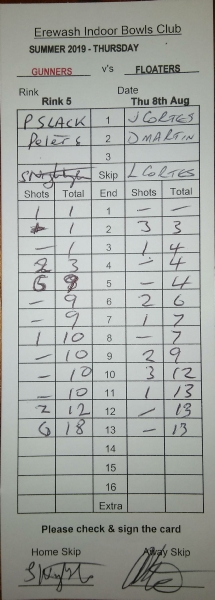 Erewash Indoor Bowls Club
SUMMER 2019 - THURSDAY
GUNNERS v's FLOATERS
Rink Date
Rink 5 Thu 8th Aug
P SLACK 1 J CORTES
Peters 2 D MARTIN
3
Skip L CORTES
Shots Total End Shots Total
1 1 1 — —
1 2 3 3
— 1 3 1 4
2 3 4 - 4
5 - 4
— 9 6 2 6
- 9 7 1 7
1 10 8 - 7
— 10 9 2 9
— 10 10 3 12
- 10 11 1 13
2 12 12 - 13
6 18 13 - 13
14
15
16
Extra
Please check & sign the card
Home Skip Away Skip